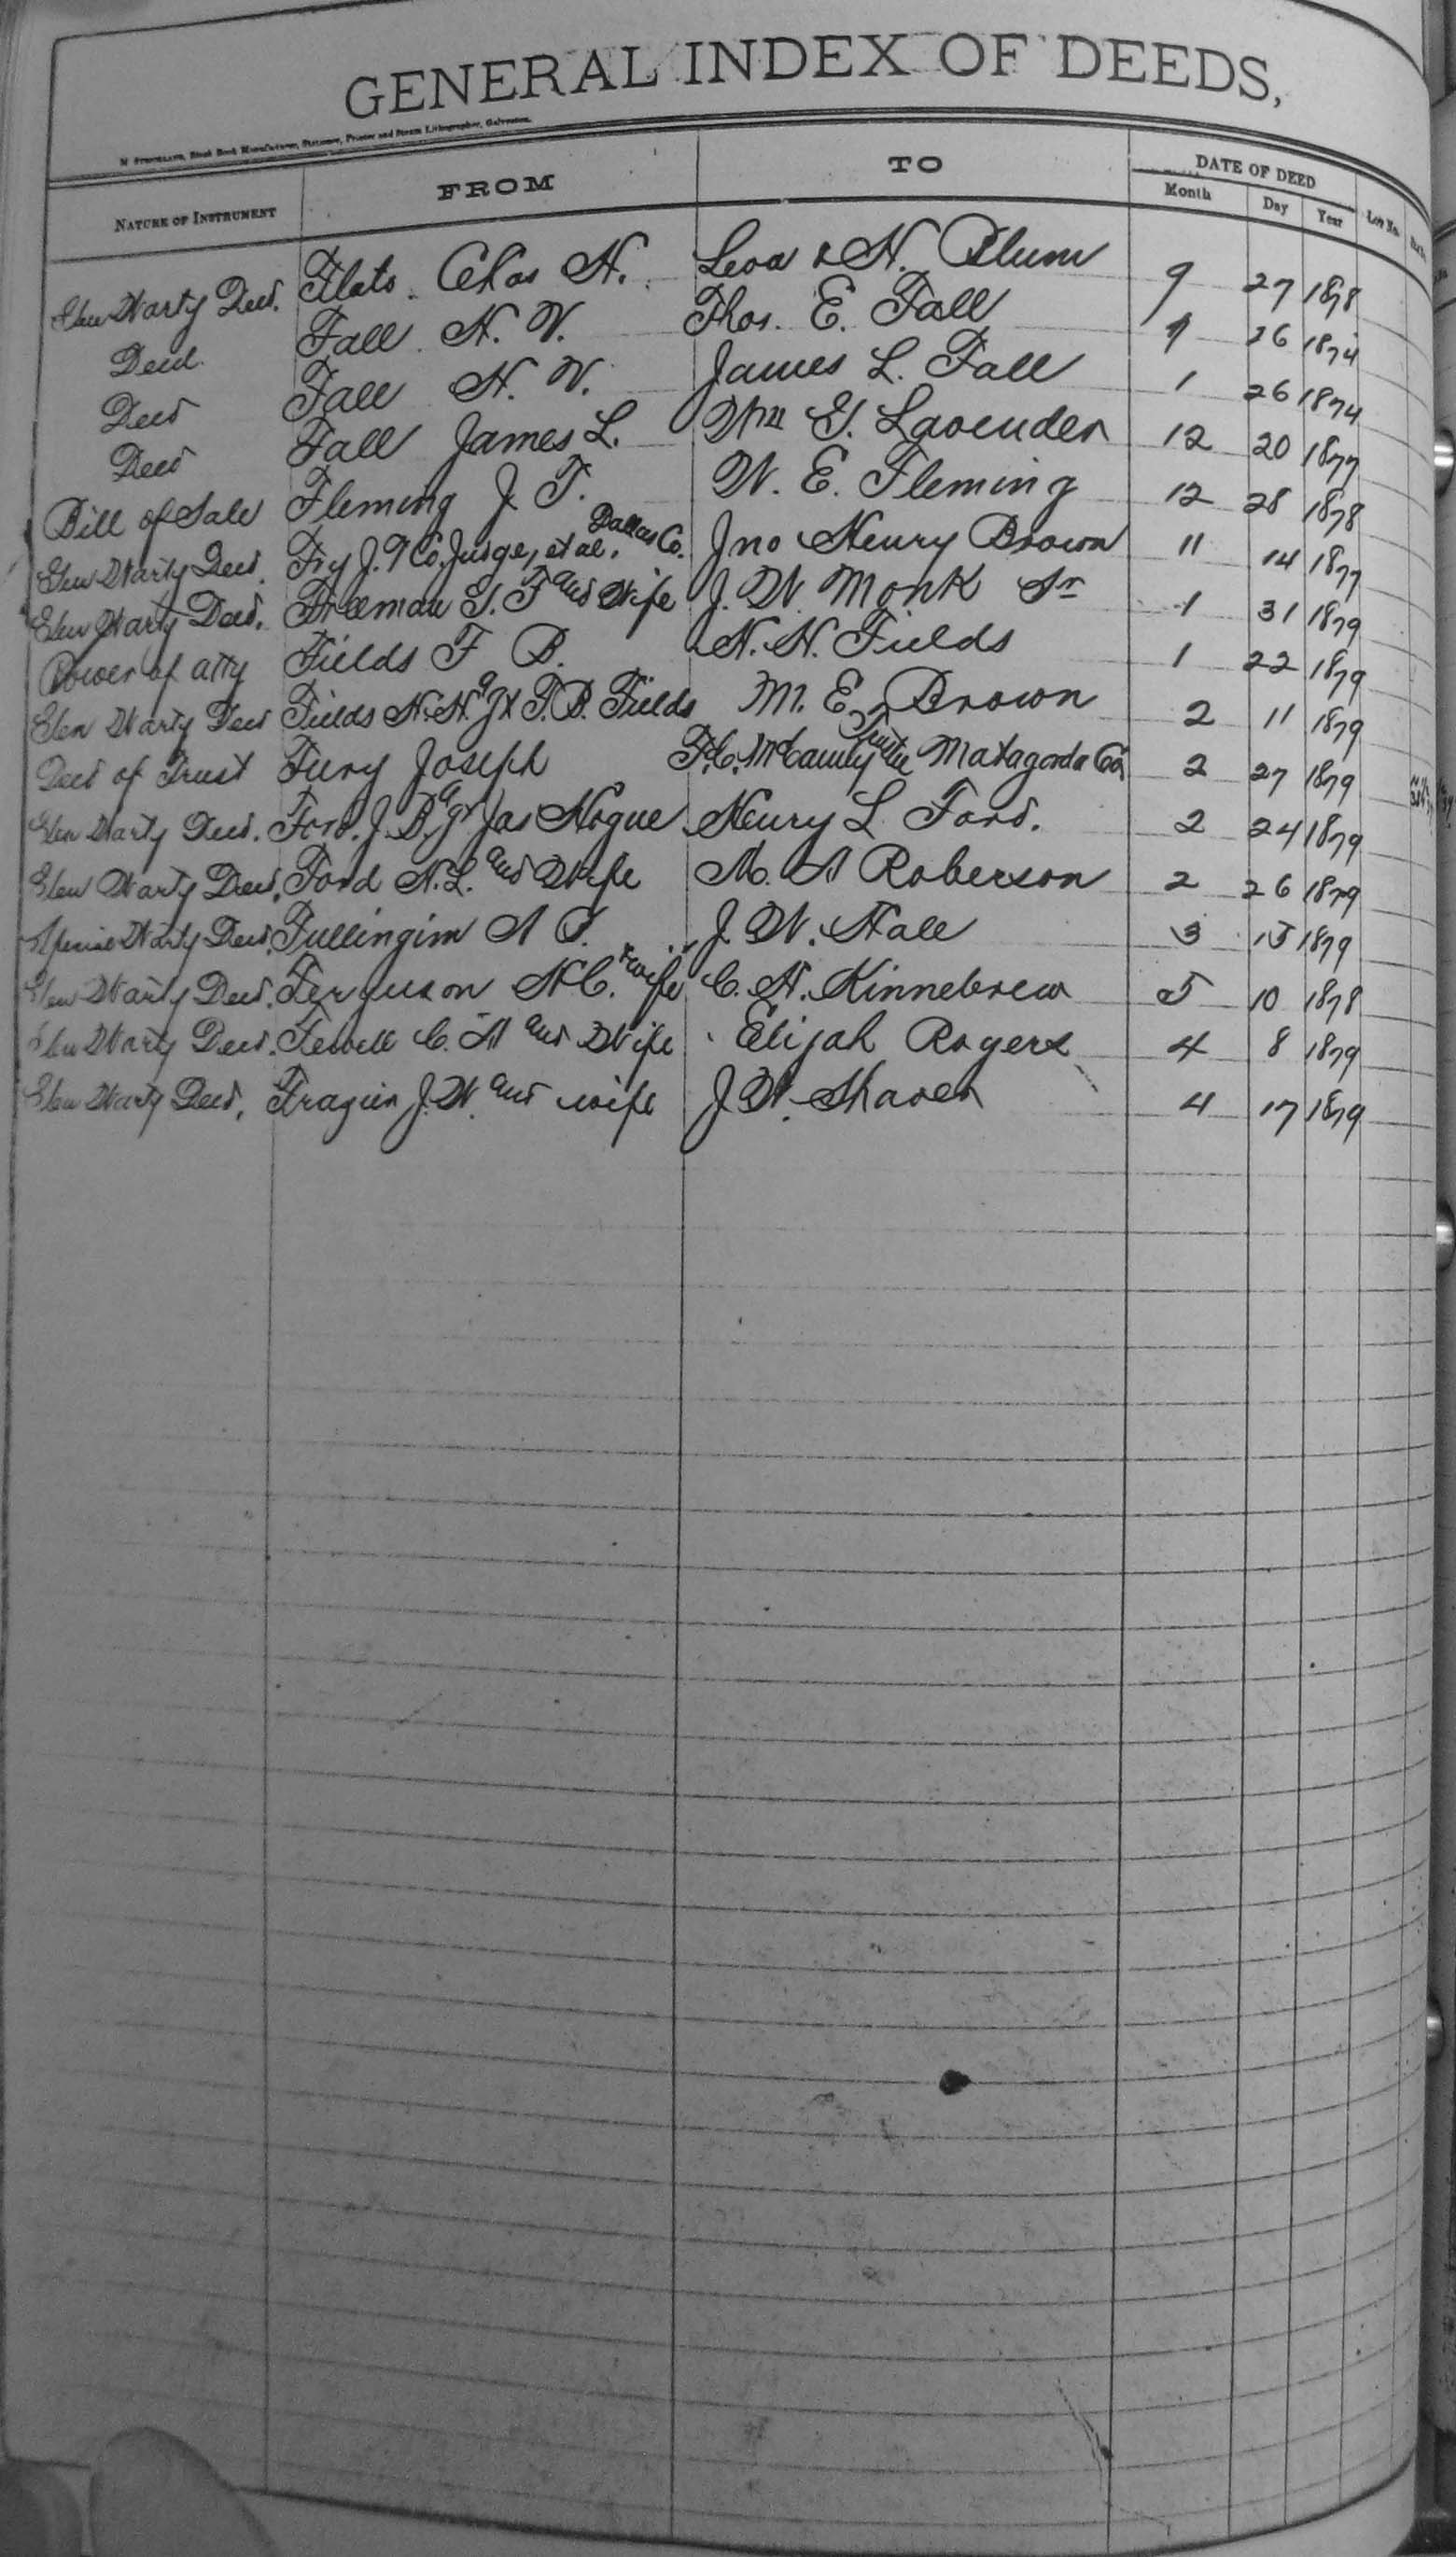 GENERAL INDEX OF DEEDS,
M STRICKLAND, Blank Book Manufacturer, Stationer, Printer and Steam Lithographer, Galveston.
NATURE OF INSTRUMENT FROM TO DATE OF DEED
Month Day Year Lot No.
Gen Warty Deed. Flato. Chas H. Leon & H. Blum 9 27 1878
Deed. Fall. H. V. Thos. E. Fall 1 26 1874
Deed Fall H. V. James L. Fall 1 26 1874
Deed Fall James L. Wm G. Lavender 12 20 1877
Bill of Sale Fleming J. T. W. E. Fleming 12 28 1878
Gen Warty Deed. Fry J. T Co. Judge, et al, Dallas Co. Jno Henry Brown 11 14 1877
Gen Warty Deed. Freeman G. F and Wife J. W. Monk Sr 1 31 1879
Power of atty Fields F B. N. H. Fields 1 22 1879
Gen Warty Deed Fields N. H. agt F. B. Fields M. E. Brown 2 11 1879
Deed of Trust Fury Joseph F. C. McCamly Trustee Matagorda Co. 2 27 1879
Gen Warty Deed. Ford. J. B. agt Jas Hogue Henry L Ford. 2 24 1879
Gen Warty Deed. Ford H. L. and Wife M. A Roberson 2 26 1879
Special Warty Deed. Fullingim A J. J. W. Hall 3 15 1879
Gen Warty Deed. Ferguson H C. & wife C. H. Kinnebrew 5 10 1878
Gen Warty Deed. Fewell C. A and Wife Elijah Rogers 4 8 1879
Gen Warty Deed, Frazier J. W. and wife J. W. Shaver 4 17 1879